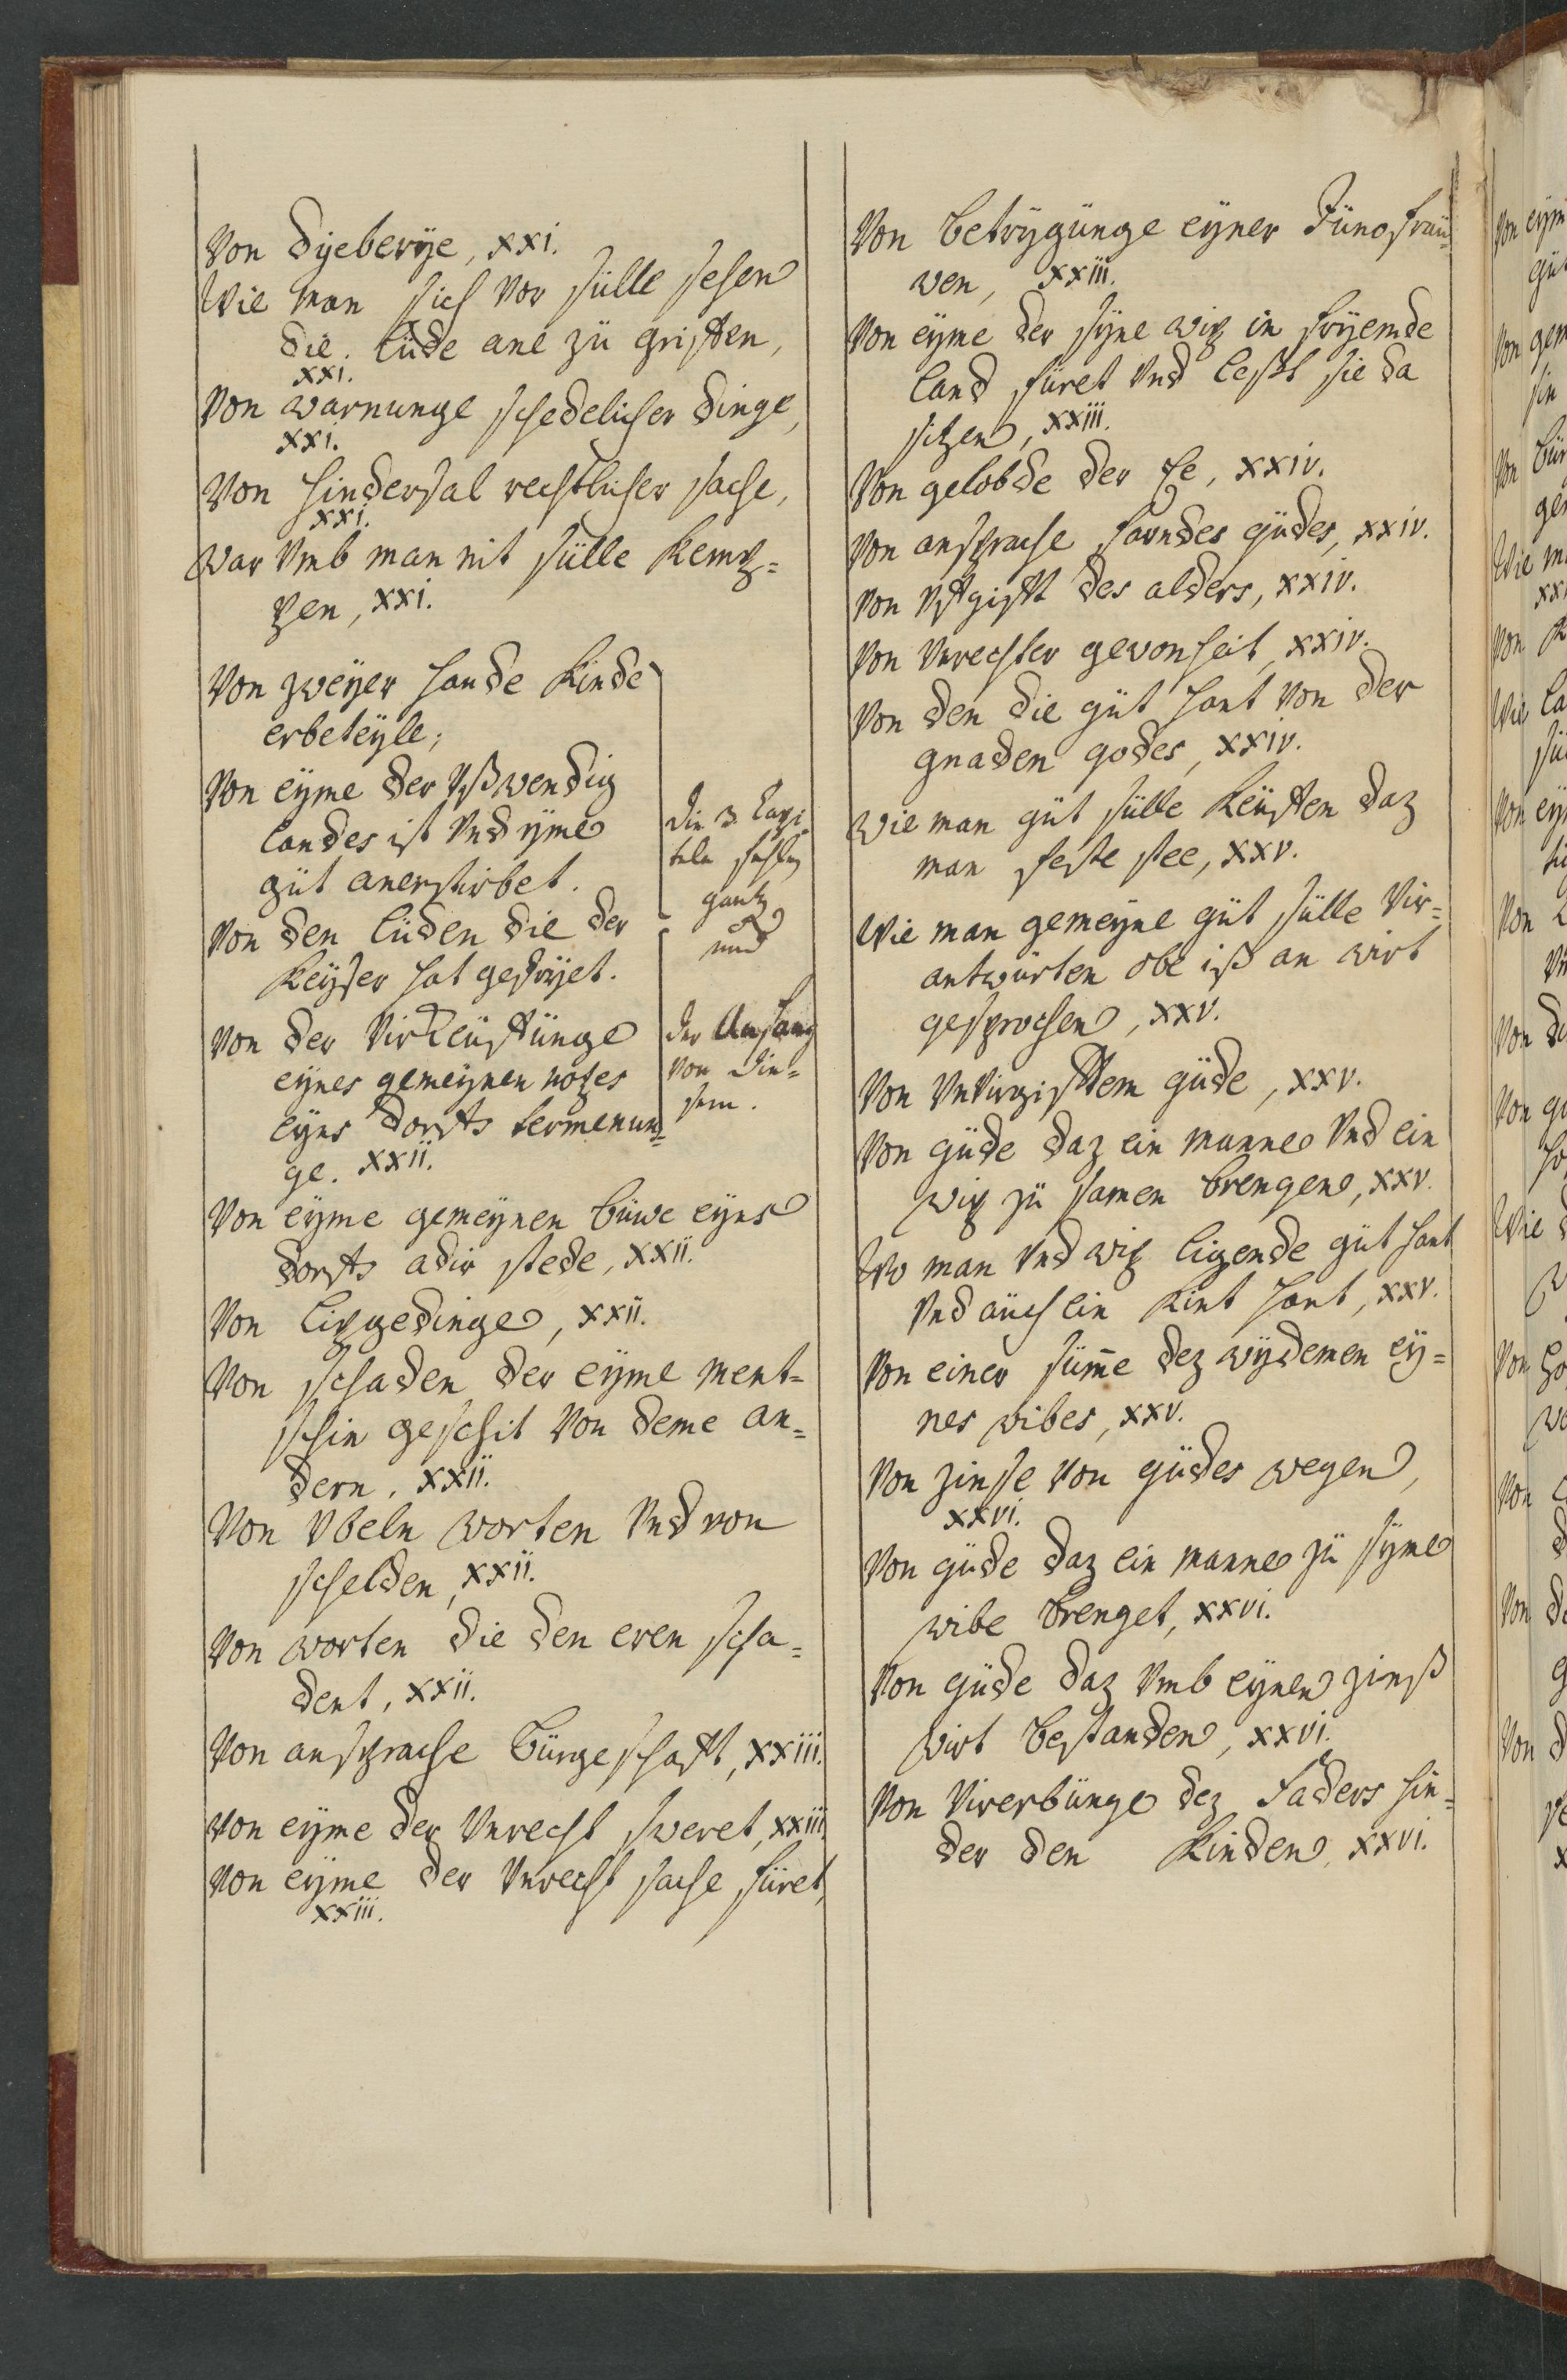 Von dyeberÿe, xxi.
Wie man sich vor sülle sehen
die. lüde ane zü griffen,
xxi.
Von warnunge schedelicher dinge,
xxi.
Von hindersal rechtlicher sache,
xxi.
War vmb man nit sülle kemp=
pen, xxi.
Von zweÿer hande kinde
erbeteÿle;
Von eÿme der vßwendig
landes ist vnd ÿme
güt anerstirbet.
Von den lüden die der
keÿser hat gefrÿet.
Von der virkeuffünge
eÿnes gemeÿnen notzes
eÿns dorffs termenun=
ge. xxii.
die 3. Capi
teln fehlen
gantz
und
der Anfang
von die=
sem.
Von eÿme gemeÿnen büwe eÿns
dorffs adir stede, xxii.
Von lipgedinge, xxii.
Von schaden der eÿme ment=
schin geschit von deme an=
dern, xxii.
Von vbeln worten vnd von
schelden, xxii.
Von worten die den eren scha=
dent, xxii.
Von ansprache bürgeschafft, xxiii.
Von eÿme der vnrecht sweret, xxiii.
Von eÿme der vnrecht sache füret,
xxiii.
Von betrÿgünge eÿner Jüncfrau
wen, xxiii.
Von eÿme der sÿne wip in frÿemde
land füret vnd leßt sie da
sitzen, xxiii.
Von gelobde der Ee, xxiv.
Von ansprache farndes güdes, xxiv.
Von vffgifft des alders, xxiv.
Von vnrechter gewonheit, xxiv.
Von den die güt hant von der
gnaden godes, xxiv.
Wie man güt sülle keüffen daz
man feste stee, xxv.
Wie man gemeÿne güt sülle vir=
antwürten obe iß an wirt
gesprochen, xxv.
Von vnvirgifftem güde, xxv.
Von güde daz ein manne vnd ein
wip zü samen brengen, xxv.
Wo man vnd wip ligende güt hant
vnd aüch ein kint hant, xxv.
Von einer süme dez wÿdemen eÿ=
nes wibes, xxv.
Von zinse von güdes wegen,
xxvi.
Von güde daz ein manne zü sÿme
wibe brenget, xxvi.
Von güde daz vmb eÿnen zinß
wirt bestanden, xxvi.
Von virerbünge dez faders hin=
der den kinden, xxvi.